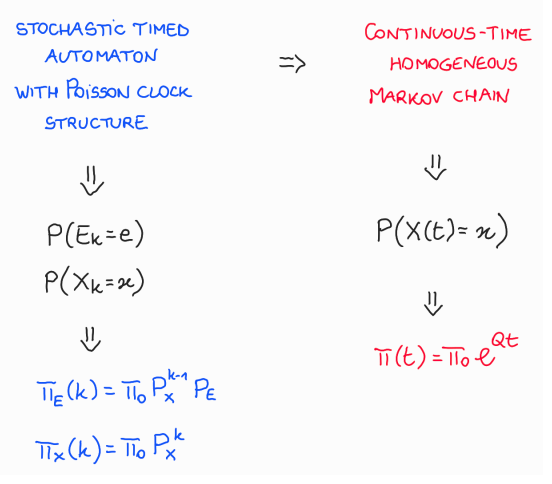 STOCHASTIC TIMED
AUTOMATON
WITH POISSON CLOCK
STRUCTURE
⇒
CONTINUOUS-TIME
HOMOGENEOUS
MARKOV CHAIN
⇓
P(Ek=e)
P(Xk=x)
⇓
πE(k) = π0 Px^k-1 PE
πX(k) = π0 Px^k
⇓
P(X(t)=x)
⇓
π(t) = π0 e^Qt